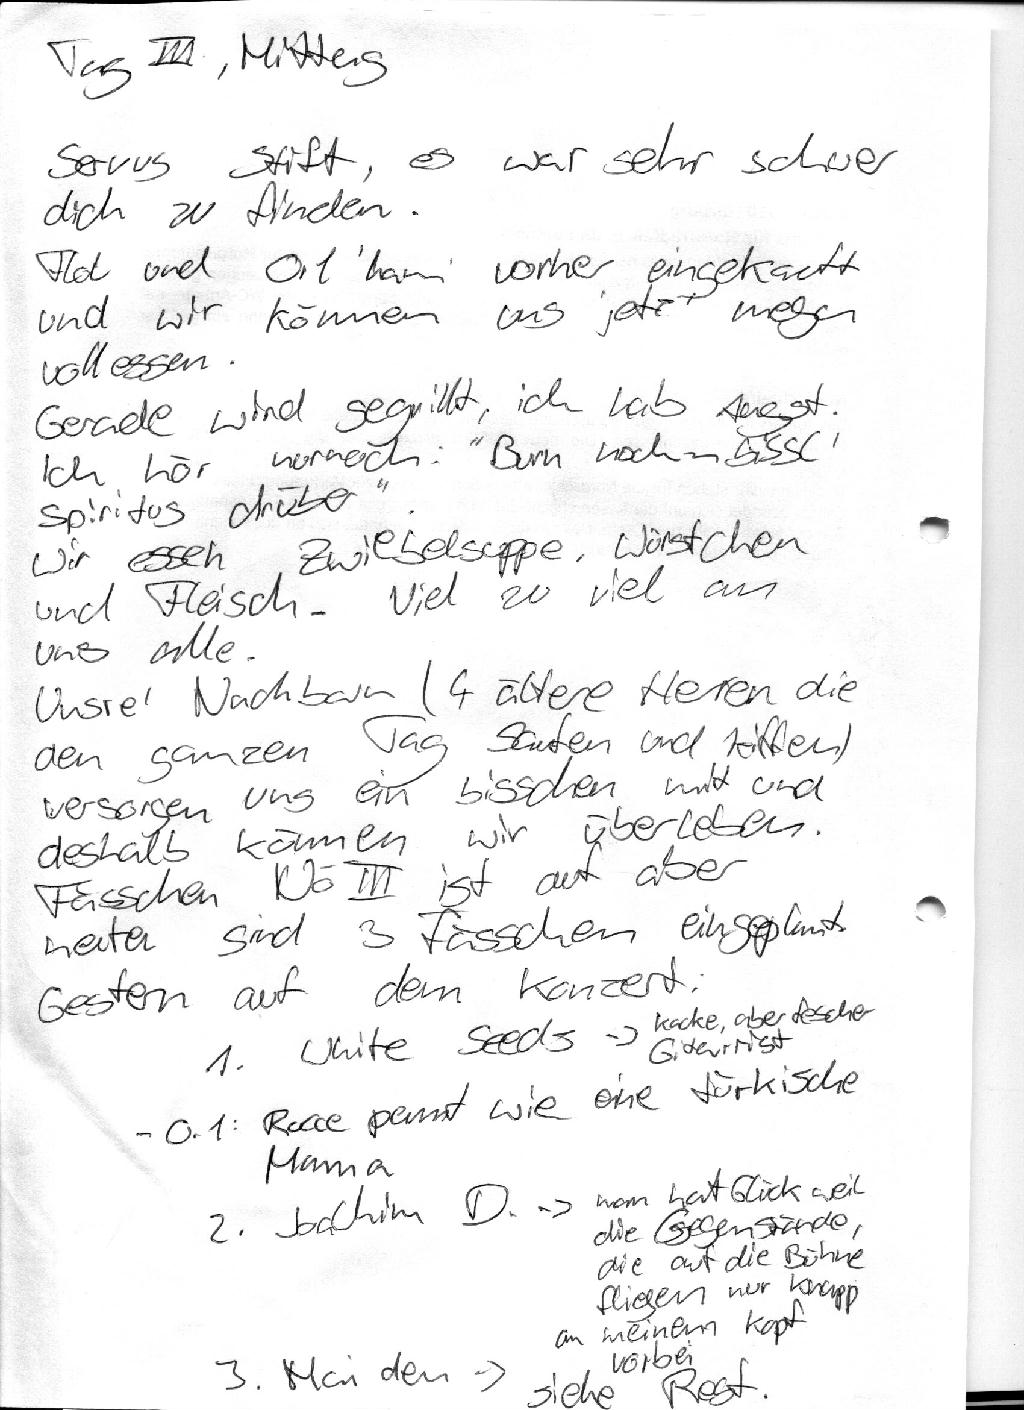 Tag III, Mittag
Servus Stift, es war sehr schwer
dich zu finden.
Flo und Orl 'ham' vorher eingekauft
und wir können uns jetzt mega
voll essen.
Gerade wird gegrillt, ich hab Angst.
Ich hör nurnoch: "Bum noch n bissl'
spiritus drüber".
Wir essen Zwiebelsuppe, Würstchen
und Fleisch. Viel zu viel an
uns alle.
Unsre' Nachbarn (4 ältere Herren die
den ganzen Tag Saufen und kiffen)
versorgen uns ein bisschen mit und
deshalb können wir überleben.
Fässchen No III ist auf aber
sind 3 Fässchen eingeplant
Gestern auf dem Konzert:
1. White Seeds -> kacke, aber fescher
Gitarrist
-0.1: pennt wie eine türkische
Mama
2. Joachim D. -> man hat Glück weil
die Gegenstände,
die auf die Bühne
fliegen nur knapp
an meinem Kopf
vorbei
3. Maiden -> siehe Rest.